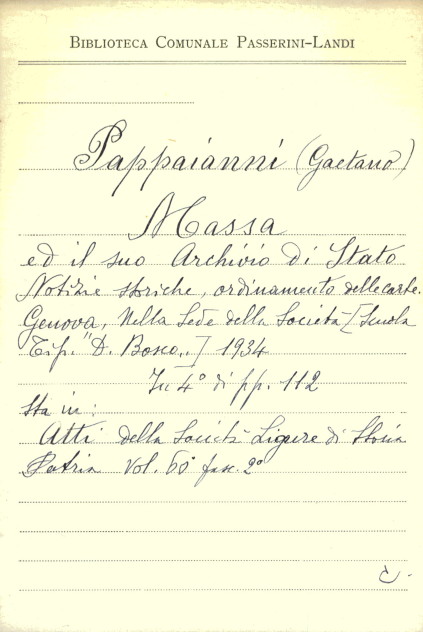 BIBLIOTECA COMUNALE PASSERINI-LANDI
Pappaianni (Gaetano)
Massa
ed il suo Archivio di Stato
Notizie storiche, ordinamento delle carte.
Genova, Nella Sede della Società [Scuola
Tip. "D. Bosco„] 1934
In 4° di pp. 112
Sta in:
Atti della Società Ligure di Storia
Patria Vol. 60° fasc. 2°